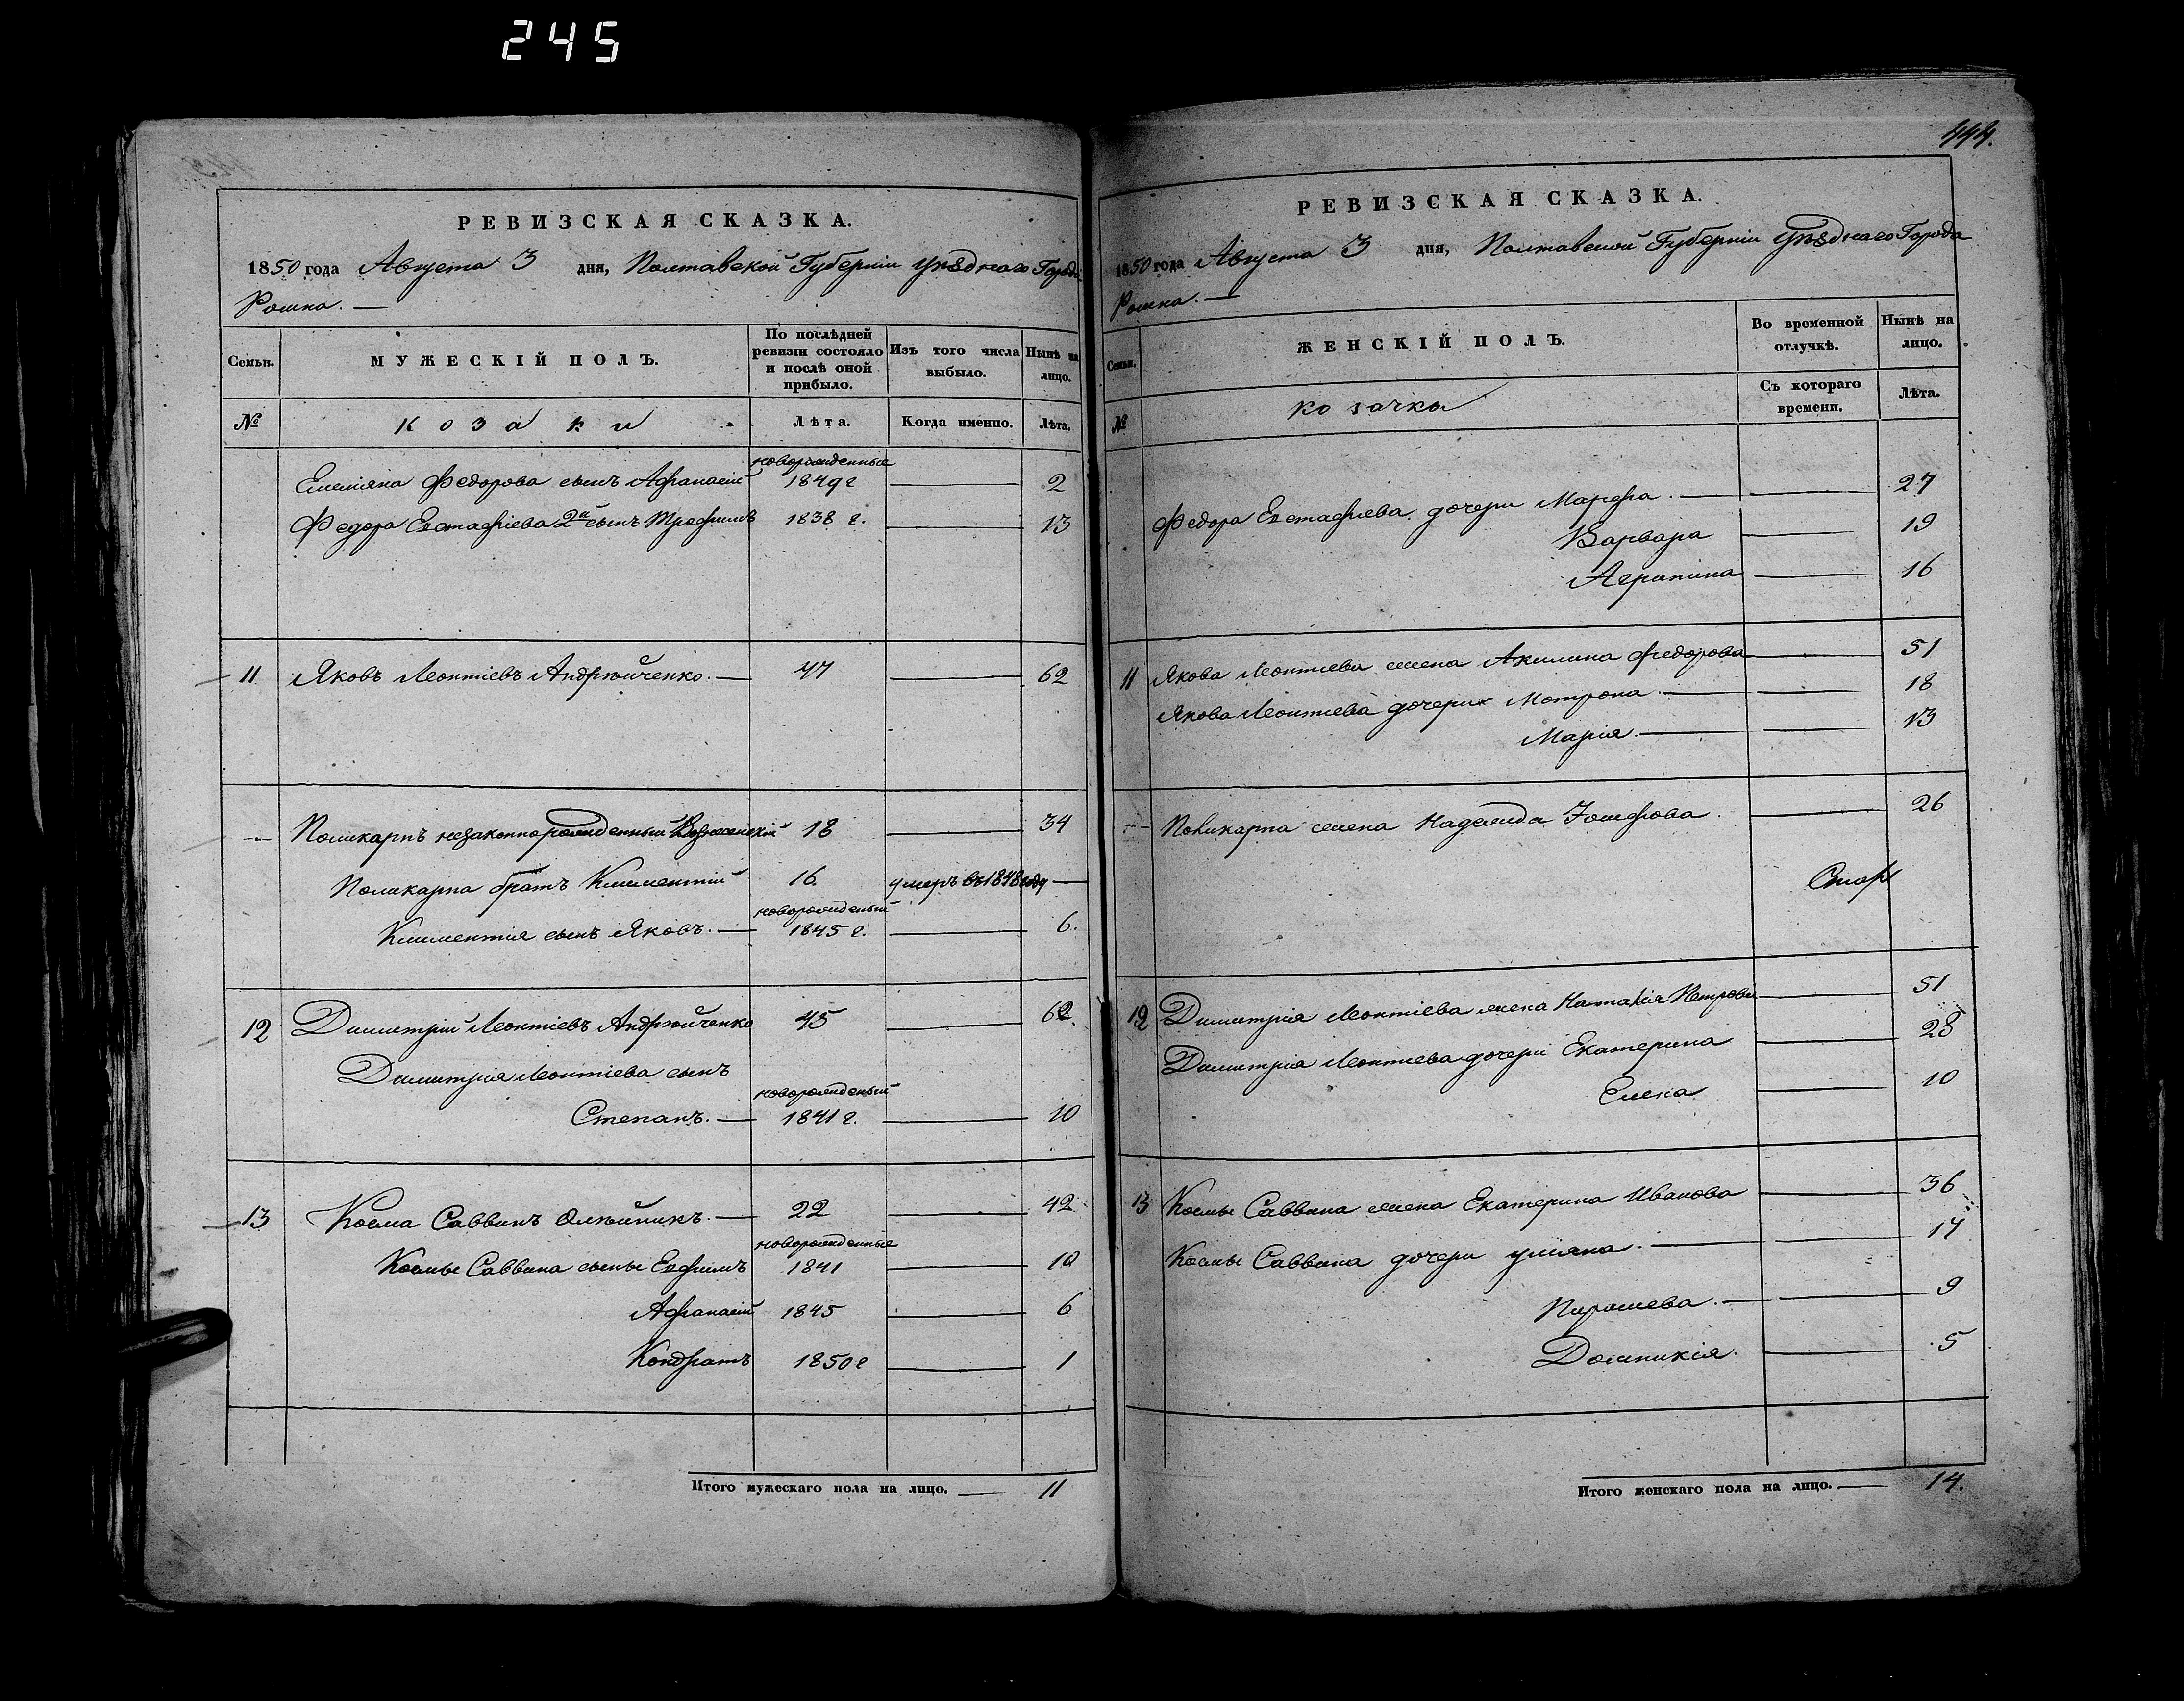 245
РЕВИЗСКАЯ СКАЗКА.
1850 года Августа 3 дня, Полтавской Губерніи уѣзднаго Города
Ромна. —
Семьи. МУЖЕСКІЙ ПОЛЪ. По послѣдней ревизіи состояло и послѣ оной прибыло. Изъ того числа выбыло. Нынѣ на лицо.
№ Козаки Лѣта. Когда именно. Лѣта.
новорожденные
Емеліяна Федорова сынъ Афанасій 1849 г — 2
Федора Евстафіева 2й сынъ Трофимъ 1838 г. — 13
11 Яковъ Леонтіевъ Андрюйченко. — 47 — 62
Поликарпъ незаконнорожденный 18 — 34
Поликарпа братъ Климентій 16. умеръ въ 1848 году —
новорожденый
Климентія сынъ Яковъ. — 1845 г. — 6.
12 Димитрій Леонтіевъ Андрюйченко 45 — 62.
Димитрія Леонтіева сынъ
новорожденый
Степанъ. — 1841 г. — 10
13 Косма Саввинъ Олѣйникъ. — 22 — 42
новорожденные
Космы Саввина сыны Евфимъ 1841 — 10
Афанасій 1845 — 6
Кондратъ 1850 г — 1
Итого мужескаго пола на лицо. — 11
444.
РЕВИЗСКАЯ СКАЗКА.
1850 года Августа 3 дня, Полтавской Губерніи Уѣзднаго Города
Ромна. —
Семьи. ЖЕНСКІЙ ПОЛЪ. Во временной отлучкѣ. Нынѣ на лицо.
№ козачки Съ котораго времени. Лѣта.
Федора Евстафіева дочери Марфа. — 27
Варвара — 19
Агрипина — 16
11 Якова Леонтіева жена Акилина Федорова — 51
Якова Леонтіева дочери Мотрона — 18
Марія. — 13
Поликарпа жена Надежда — 26
12 Димитрія Леонтіева жена Наталія Петрова — 51
Димитрія Леонтіева дочери Екатерина — 28
Елена — 10
13 Космы Саввина жена Екатерина Иванова — 36
Космы Саввина дочери Уліяна. — 14
— 9
Домникія. — 5
Итого женскаго пола на лицо. — 14.